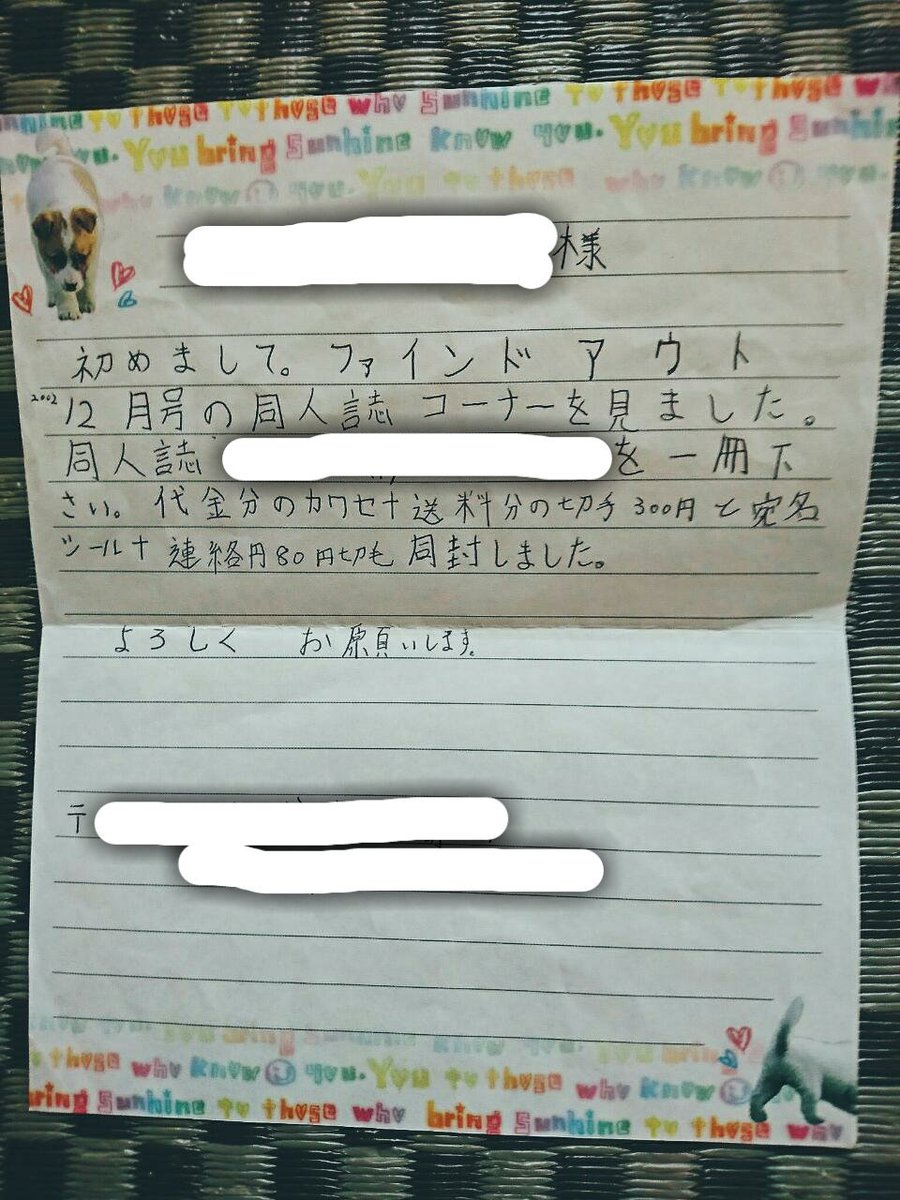 nhine to those to those who Sunhine to those to those wh
now you. You bring Sunhine know you. You bring Sunhine
who know you. You to those who know you.
様
初めまして。ファインドアウト
2002 12月号の同人誌コーナーを見ました。
同人誌 を一冊下
さい。代金分のカワセ+送料分の切手300円と宛名
シール+連絡円80円切も同封しました。
よろしくお願いします。
〒
bring Sunhine
to those who know you. You to those who know
bring Sunhine to those who bring Sunhine to those who